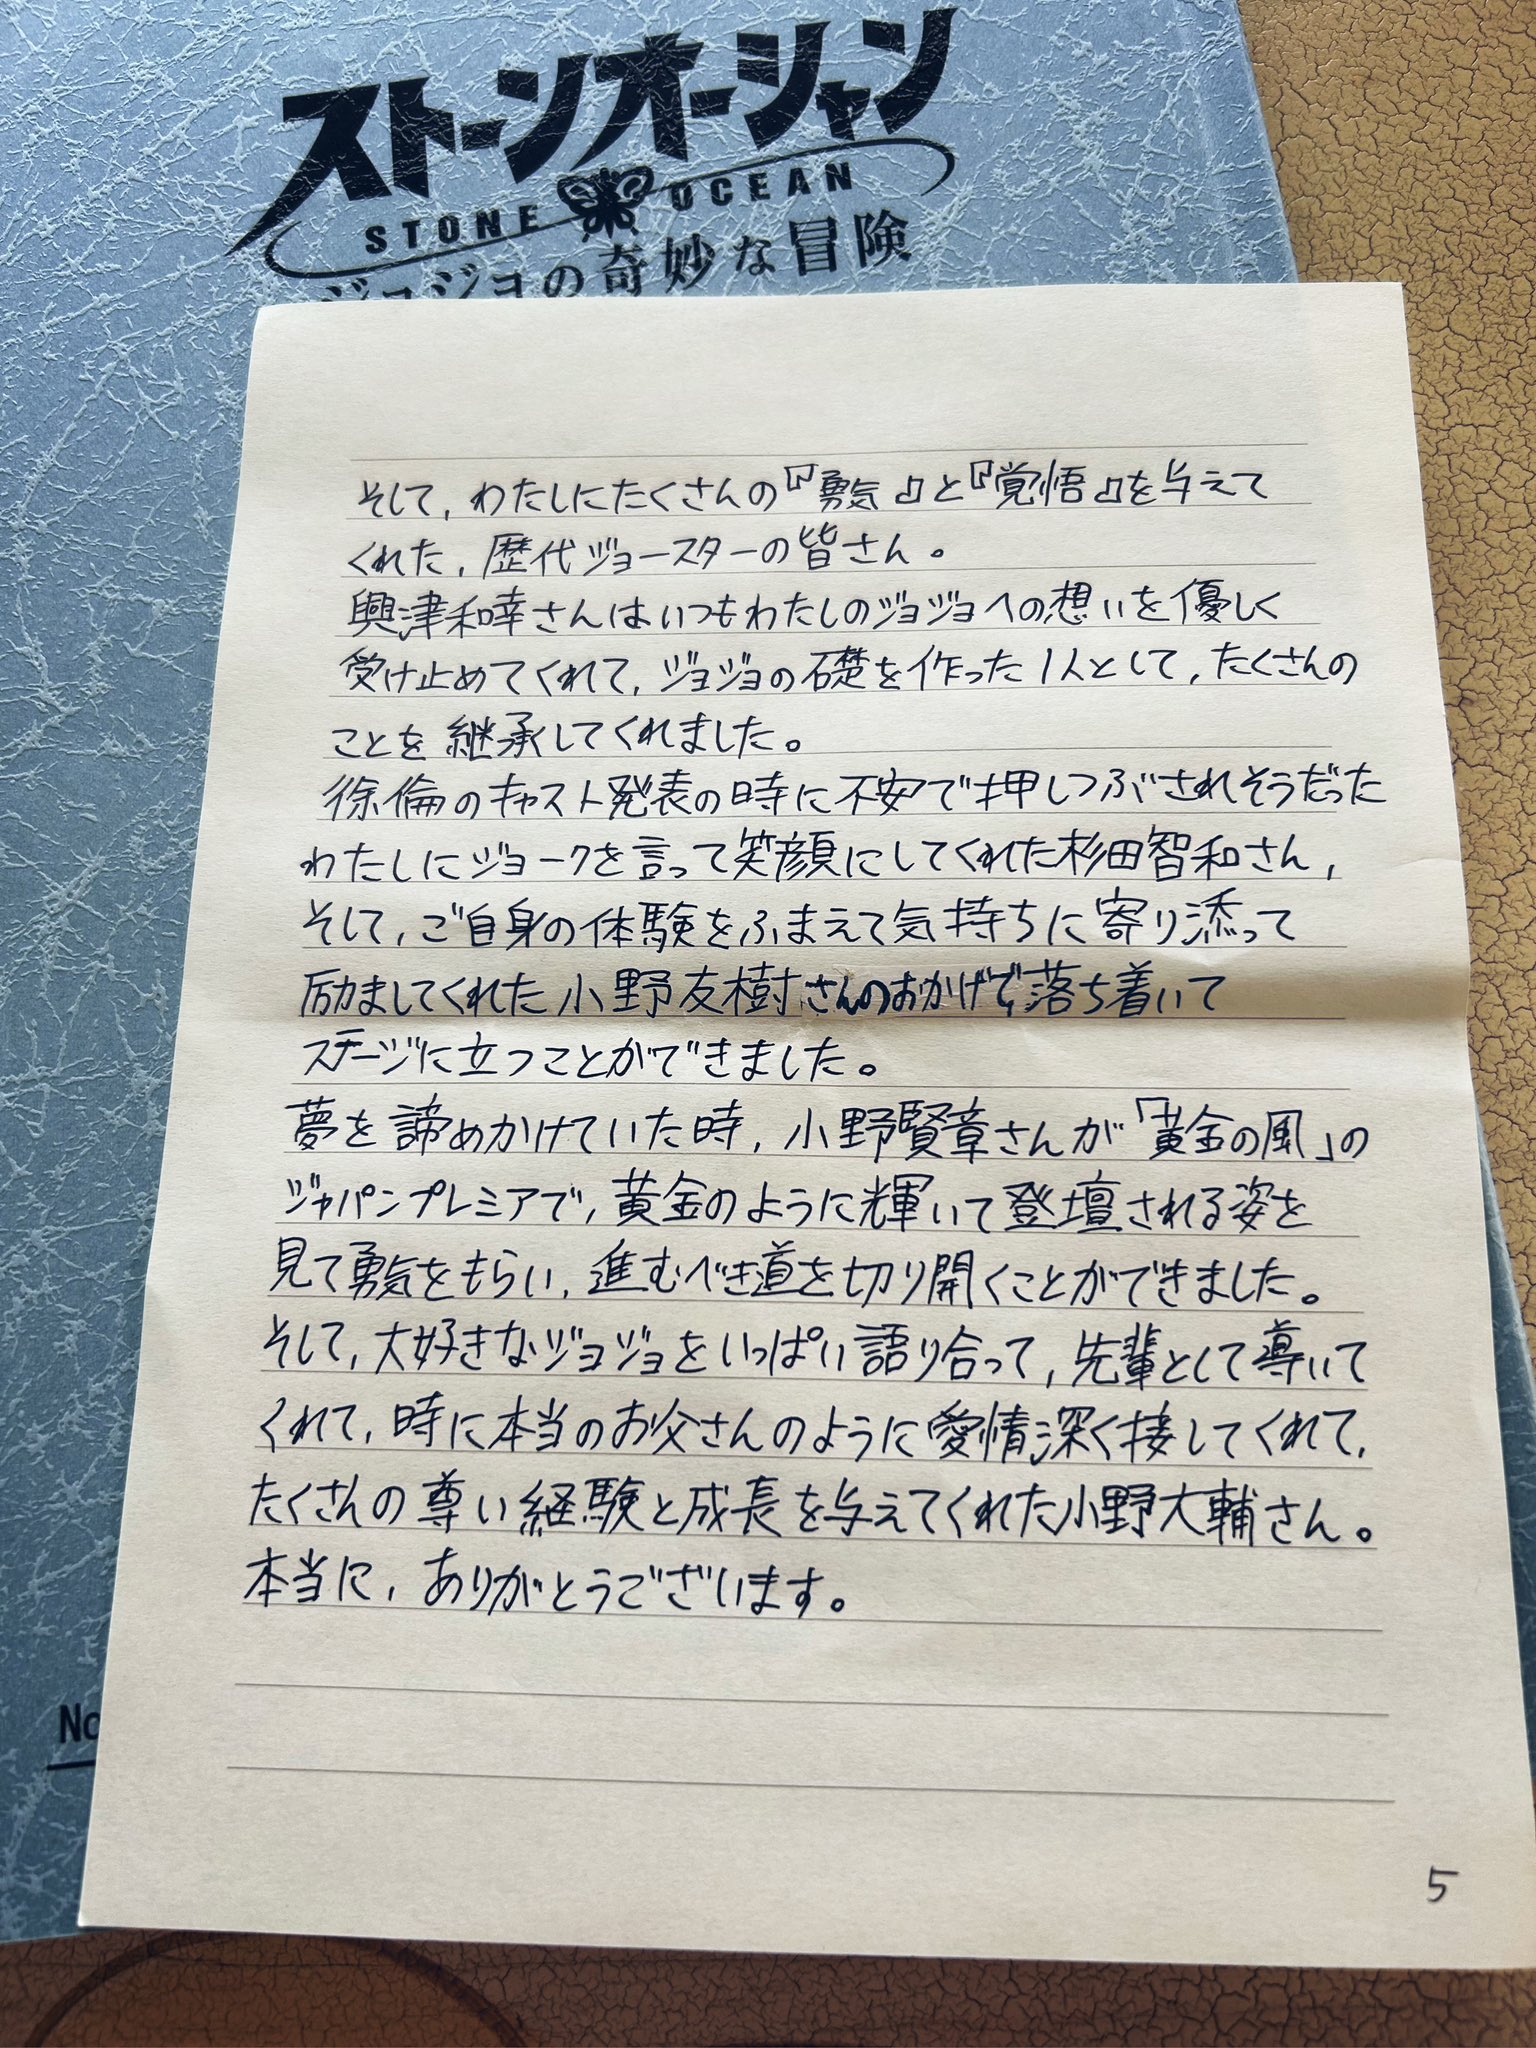 ストーンオーシャン
STONE OCEAN
ジョジョの奇妙な冒険
そして、わたしにたくさんの『勇気』と『覚悟』を与えて
くれた、歴代ジョースターの皆さん。
興津和幸さんはいつもわたしのジョジョへの想いを優しく
受け止めてくれて、ジョジョの礎を作った1人として、たくさんの
ことを継承してくれました。
徐倫のキャスト発表の時に不安で押しつぶされそうだった
わたしにジョークを言って笑顔にしてくれた杉田智和さん、
そして、ご自身の体験をふまえて気持ちに寄り添って
励ましてくれた小野友樹さんのおかげで、落ち着いて
ステージに立つことができました。
夢を諦めかけていた時、小野賢章さんが「黄金の風」の
ジャパンプレミアで、黄金のように輝いて登壇される姿を
見て勇気をもらい、進むべき道を切り開くことができました。
そして、大好きなジョジョをいっぱい語り合って、先輩として導いて
くれて、時に本当のお父さんのように愛情深く接してくれて、
たくさんの尊い経験と成長を与えてくれた小野大輔さん。
本当に、ありがとうございます。
No
5